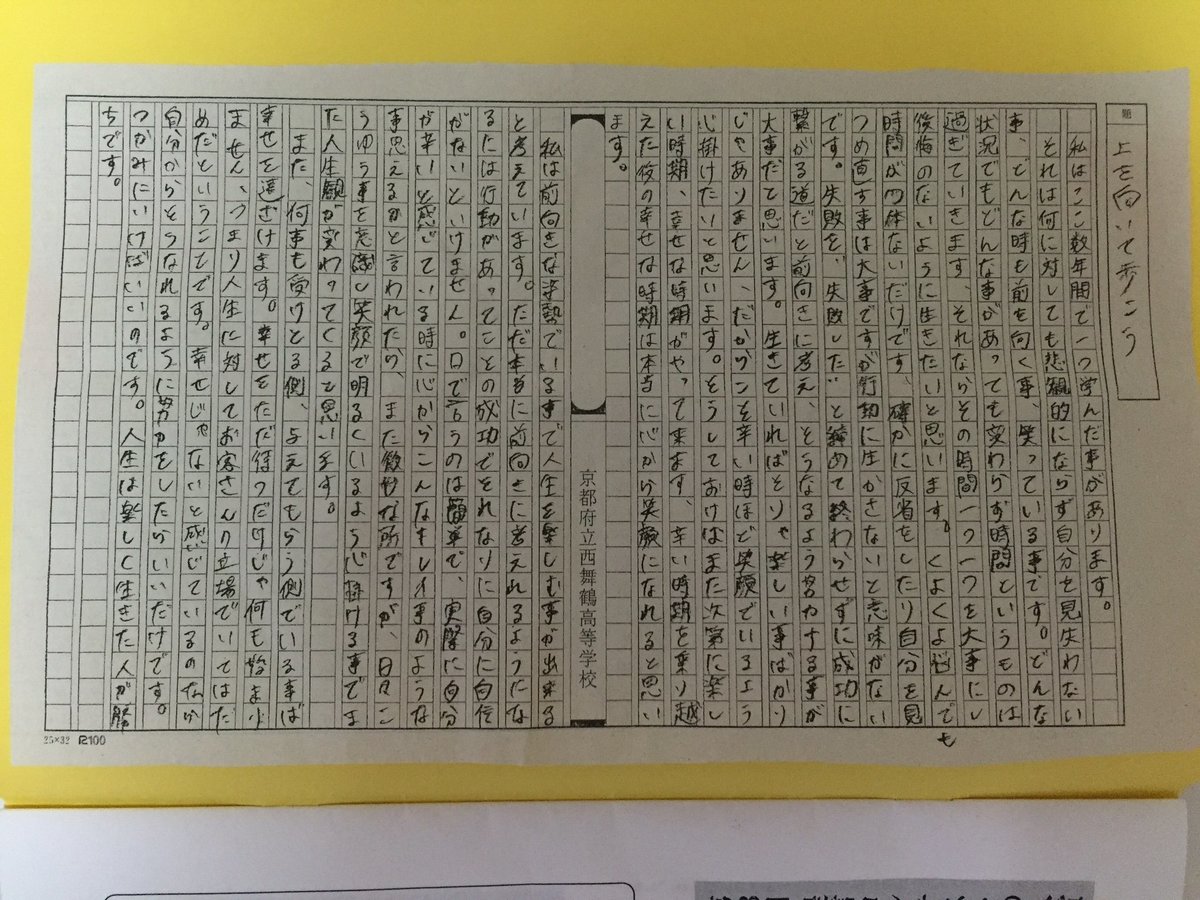 題
上を向いて歩こう
私はここ数年間で一つ学んだ事があります。
それは何に対しても悲観的にならず自分を見失わない
事、どんな時も前を向く事、笑っている事です。どんな
状況でもどんな事があっても変わらず時間というものは
過ぎていきます。それならその時間一つ一つを大事にし
後悔のないように生きたいと思います。くよくよ悩んでも
時間が勿体ないだけです。確かに反省をしたり自分を見
つめ直す事は大事ですが行動に生かさないと意味がない
です。失敗を、失敗した、と締めて終わらせずに成功に
繋がる道だと前向きに考え、そうなるよう努力する事が
大事だて思います。生きていればそりゃ楽しい事ばかり
じゃありません、だからこそ辛い時ほど笑顔でいるよう
心掛けたいと思います。そうしておけばまた次第に楽し
い時期、幸せな時期がやって来ます、辛い時期を乗り越
えた後の幸せな時期は本当に心から笑顔になれると思い
ます。
京都府立西舞鶴高等学校
私は前向きな姿勢でいる事で人生を楽しむ事が出来る
と考えています。ただ本当に前向きに考えれるようにな
るには行動があってことの成功でそれなりに自分に自信
がないといけません。口で言うのは簡単で、実際に自分
が辛いと感じている時に心からこんなキレイ事のような
事思えるかと言われたら、また微妙な所ですが、日々こ
うゆう事を意識し笑顔で明るくいるよう心掛ける事でま
た人生観が変わってくると思います。
また、何事も受けとる側、与えてもらう側でいる事ば
幸せを遠ざけます。幸せをただ待つだけじゃ何も始まり
ません、つまり人生に対してお客さんの立場でいてはだ
めだということです。幸せじゃないと感じているのなら
自分からそうなれるように努力をしたらいいだけです。
つかみにいけばいいのです。人生は楽しく生きた人が勝
ちです。
25×32 R100